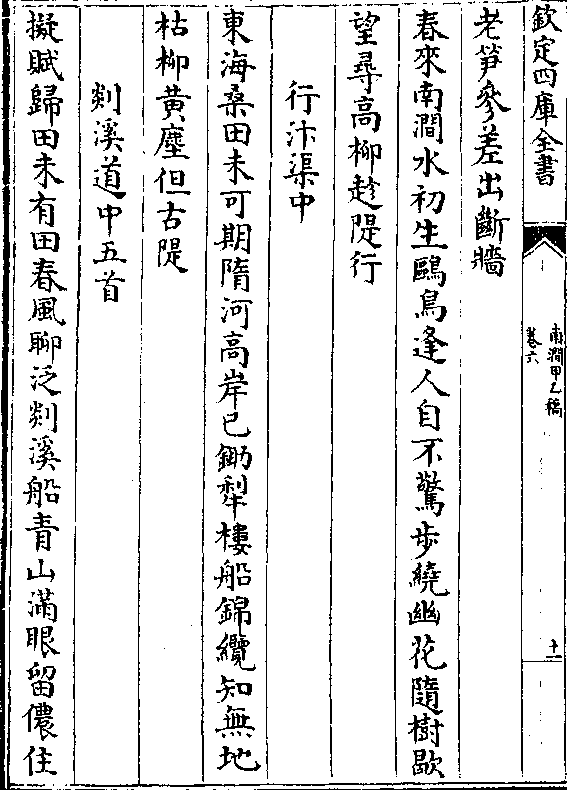 欽定四庫全書
南澗甲乙稿
卷六
十一
老笋參差出斷牆
春來南澗水初生鷗鳥逢人自不驚步繞幽花隨樹歇
望尋高柳趁隄行
行汴渠中
東海桑田未可期隋河高岸已鋤犂樓船錦纜知無地
枯柳黃塵但古隄
剡溪道中五首
擬賦歸田未有田春風聊泛剡溪船青山滿眼留儂住